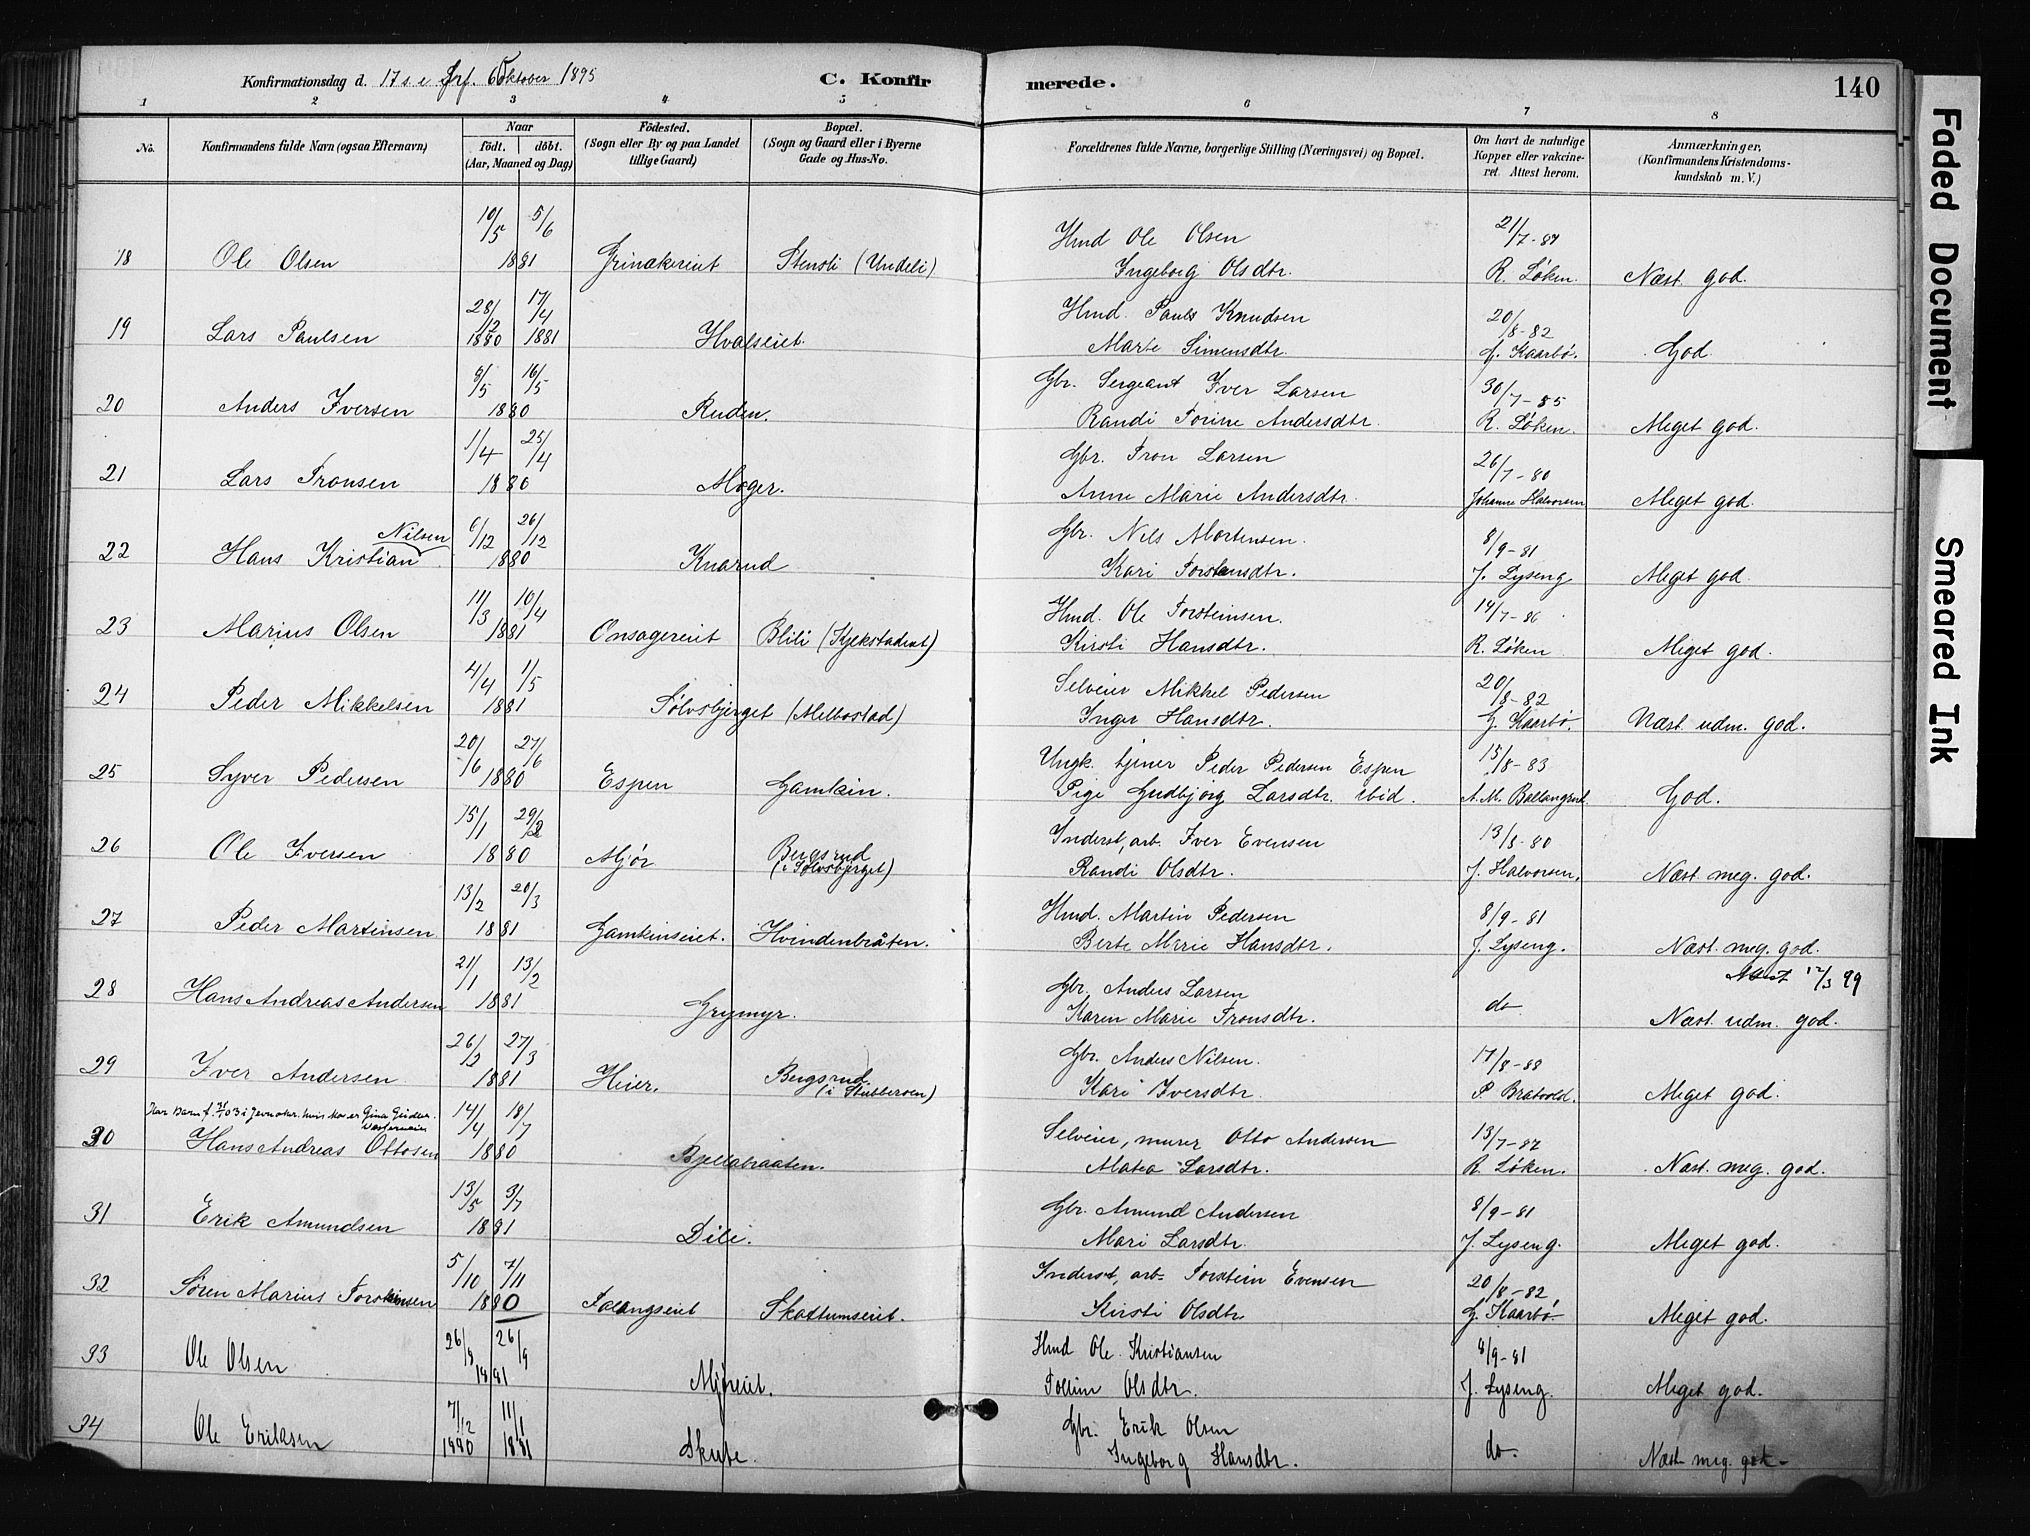 Konfirmationsdag d. 17 s. e Trf. 6 Oktober 1895 C. Konfirmerede. 140
1 2 3 4 5 6 7 8
No. Konfirmandens fulde Navn (ogsaa Efternavn) Naar födt. döbt. (Aar, Maaned og Dag) Födested. (Sogn eller By og paa Landet tillige Gaard) Bopæl. (Sogn og Gaard eller i Byerne Gade og Hus-No. Forældrenes fulde Navne, borgerlige Stilling (Næringsvei) og Bopæl. Om havt de naturlige Kopper eller vakcineret. Attest herom. Anmærkninger. (Konfirmandens Kristendomskundskab m. V.)
10/5 5/6 Hmd Ole Olsen 21/7-87
18 Ole Olsen 1881 Grinakereiet Stensli (Undeli) Ingeborg Olsdtr. R. Løken. Næst god.
28/12 17/4 Hmd. Pauls Knudsen 20/8-82
19 Lars Paulsen 1880 1881 Hvalseiet Marte Simensdtr. G. Kaarbø. God
9/5 16/5 Gbr. Sergeant Iver Larsen 30/7-85
20 Anders Iversen 1880 Ruden. Randi Torine Andersdtr. R. Løken. Meget god.
1/4 25/4 Gbr. Tron Larsen 26/7-80
21 Lars Tronsen 1880 Moger. Anne Marie Andersdtr. Johanne Halvorsen Meget god.
Nilsen 6/12 26/12 Gbr. Nils Mortensen. 8/9-81
22 Hans Kristian 1880 Knarud Kari Torstensdtr. J. Lyseng Meget god.
11/3 10/4 Hmd. Ole Torsteinsen. 14/7-86
23 Marius Olsen 1881 Onsagereiet Blili (Kjekstadeiet) Kirsti Hansdtr. R. Løken Meget god.
4/4 1/5 Selveier Mikkel Pedersen 20/8-82
24 Peder Mikkelsen 1881 Sølvsbjerget (Melbostad) Inger Hansdtr. G. Kaarbø. Næst udm. god.
20/6 27/6 Ungk. tjener Peder Pedersen Espen 15/8-83
25 Syver Pedersen 1880 Espen Gamkin. Pige Gudbjørg Larsdtr. ibid. A. M. Ballangrud God.
15/1 29/2 Inderst, arb. Iver Evensen 13/8-80
26 Ole Iversen 1880 Mjør Bergsrud (i Sølvsbjerget) Randi Olsdtr. J. Halvorsen. Næst meg. god.
13/2 20/3 Hmd. Martin Pedersen 8/9-81
27 Peder Martinsen 1881 Gamkinseiet. Hvindenbråten. Berte Marie Hansdtr. J. Lyseng. Næst. meg. god.
21/1 13/2 Gbr. Anders Larsen 17/3 99
28 Hans Andreas Andersen 1881 Grymyr. Karen Marie Tronsdtr. do Næst. udm. god.
26/2 27/3 Gbr. Anders Nilsen. 17/8-88
29 Iver Andersen 1881 Heier. Bergsrud (i Stubberoen) Kari Iversdtr. P. Bratvold. Meget god.
14/4 18/7 Selveier, murer Otto Andersen 13/7-87
30 Hans Andreas Ottosen 1880 Bjellabraaten. Matea Larsdtr. R. Løken. Næst. meg. god.
13/5 3/7 Gbr. Amund Andersen 8/9-81
31 Erik Amundsen 1881 Dili. Mari Larsdtr. J. Lyseng. Meget god.
5/10 7/11 Inderst, arb. Torstein Evensen 20/8-82
32 Søren Marius Torsteinsen 1880 Falangseiet Skattumseiet. Kirsti Olsdtr G. Kaarbø Meget god.
26/8 26/9 Hmd Ole Kristiansen 8/9-81
33 Ole Olsen 1881 Mjøreiet. Olsdtr. J. Lyseng. Meget god.
7/12 11/1 Gbr. Erik Olsen
34 Ole Eriksen 1880 1881 Skute. Ingeborg Hansdtr. do. Næst meg. god.
Faded Document
Smeared Ink